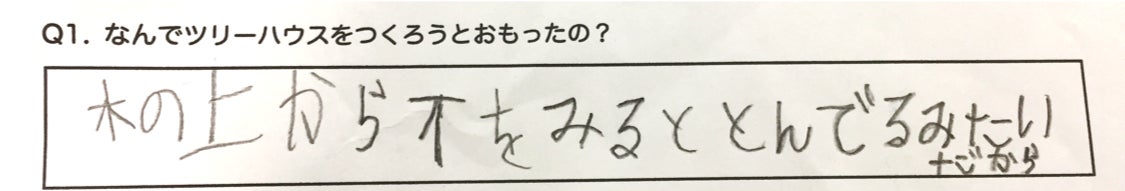 Q1. なんでツリーハウスをつくろうとおもったの？
木の上から下をみるととんでるみたい
だから